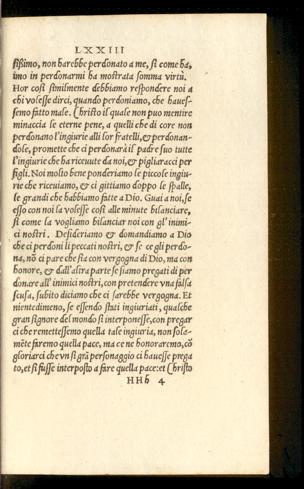 LXXIII
sissimo, non harebbe perdonato a me, sì come ha,
imo in perdonarmi ha mostrata somma virtù.
Hor così similmente debbiamo respondere noi a
chi volesse dirci, quando perdoniamo, che haues-
semo fatto male. Christo il quale non puo mentire
minaccia le eterne pene, a quelli che di core non
perdonano l'ingiurie alli lor fratelli, & perdonan-
dole, promette che ci perdonarà il padre suo tutte
l'ingiurie che ha riceuute da noi, & pigliaracci per
figli. Noi molto bene ponderiamo le piccole ingiu-
rie che riceuiamo, & ci gittiamo doppo le spalle,
le grandi che habbiamo fatte a Dio. Guai a noi, se
esso con noi la volesse così alle minute bilanciare,
sì come la vogliamo bilanciar noi con gl'inimi-
ci nostri. Desideriamo & domandiamo a Dio
che ci perdoni li peccati nostri, & se ce gli perdo-
na, nõ ci pare che sia con vergogna di Dio, ma con
honore, & dall'altra parte se siamo pregati di per
donare all'inimici nostri, con pretendere vna falsa
scusa, subito diciamo che ci sarebbe vergogna. Et
nientedimeno, se essendo stati ingiuriati, qualche
gran signore del mondo si interponesse, con pregar
ci che remettessemo quella tale ingiuria, non sola-
mẽte faremo quella pace, ma ce ne honoraremo, cõ
gloriarci che vn sì grã personaggio ci hauesse prega
to, et si fusse interposto a fare quella pace: et Christo
HHh 4